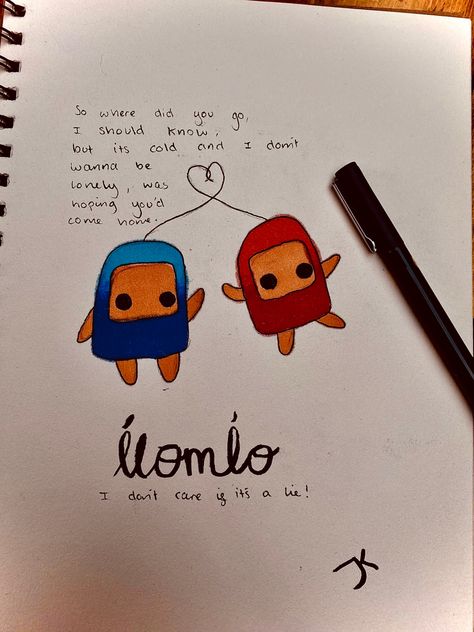 So where did you go,
I should know,
but its cold and I don't
wanna be
lonely, was
hoping you'd
come home.
ílomlo
I don't care if it's a lie!
JK